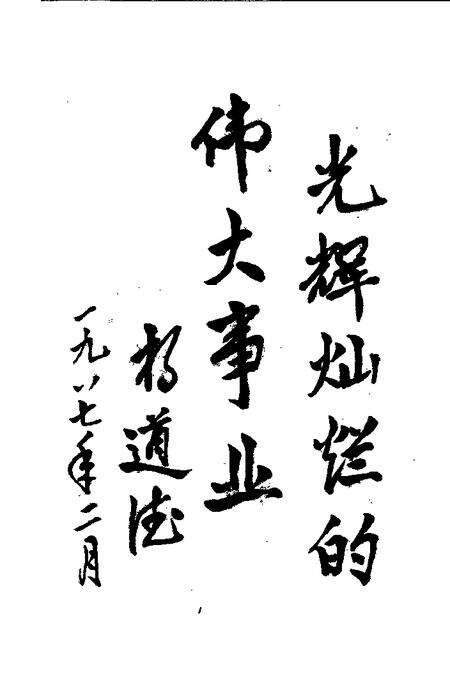 光辉灿烂的
伟大事业
杨道德
一九八七年二月